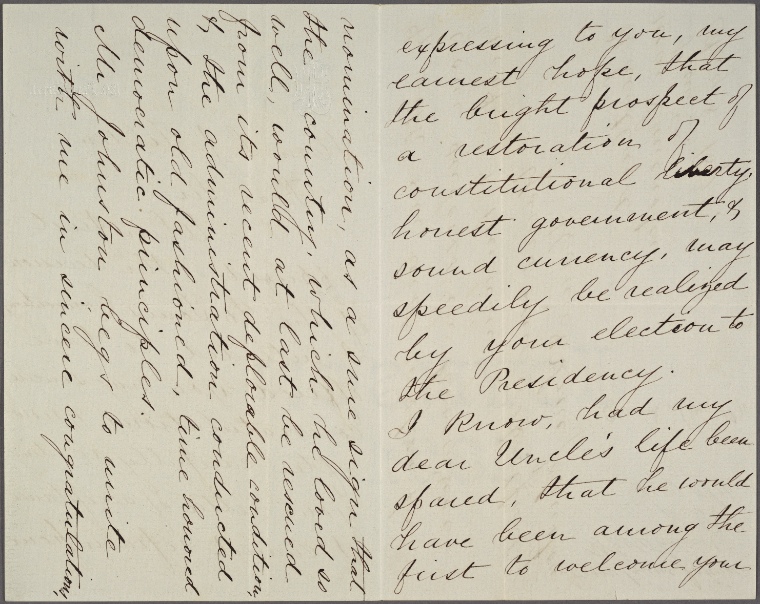 expressing to you, my
earnest hope, that
the bright prospect of
a restoration of
constitutional liberty,
honest government, &
sound currency, may
speedily be realized
by your election to
the Presidency.
I know, had my
dear Uncle's life been
spared, that he would
have been among the
first to welcome your
nomination, as a sure sign that
the country, which he loved so
well, would at last be rescued
from its recent deplorable condition,
& the administration conducted
upon old fashioned, time honored
democratic principles.
Mr Johnston begs to unite
with me in sincere congratulations,